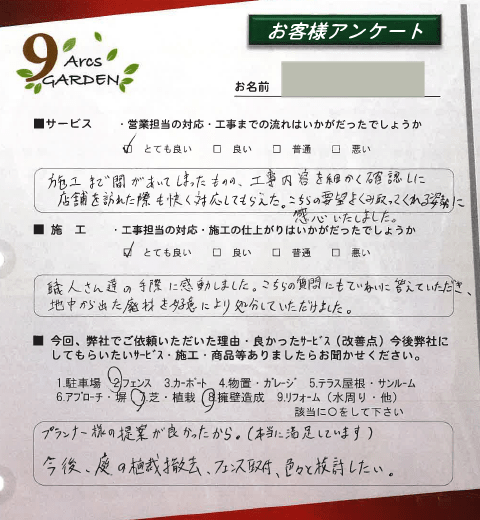 9 Arcs
GARDEN
お客様アンケート
お名前
■サービス ・営業担当の対応・工事までの流れはいかがだったでしょうか
☑ とても良い □ 良い □ 普通 □ 悪い
施工まで間があいてしまったものの、工事内容を細かく確認しに
店舗を訪れた際も快く対応してもらえた。こちらの要望をくみ取ってくれる姿勢に
感心いたしました。
■施 工 ・工事担当の対応・施工の仕上がりはいかがだったでしょうか
☑ とても良い □ 良い □ 普通 □ 悪い
職人さん達の手際に感動しました。こちらの質問にもていねいに答えていただき、
地中から出た廃材を好意により処分していただけました。
■ 今回、弊社でご依頼いただいた理由・良かったサービス（改善点）今後弊社に
してもらいたいサービス・施工・商品等ありましたらお聞かせください。
1.駐車場 2.フェンス 3.カーポート 4.物置・ガレージ 5.テラス屋根・サンルーム
6.アプローチ・塀 7.芝・植栽 8.擁壁造成 9.リフォーム（水周り・他）
該当に○をして下さい
プランナー様の提案が良かったから。（本当に満足しています）
今後、庭の植栽撤去、フェンス取付、色々と検討したい。